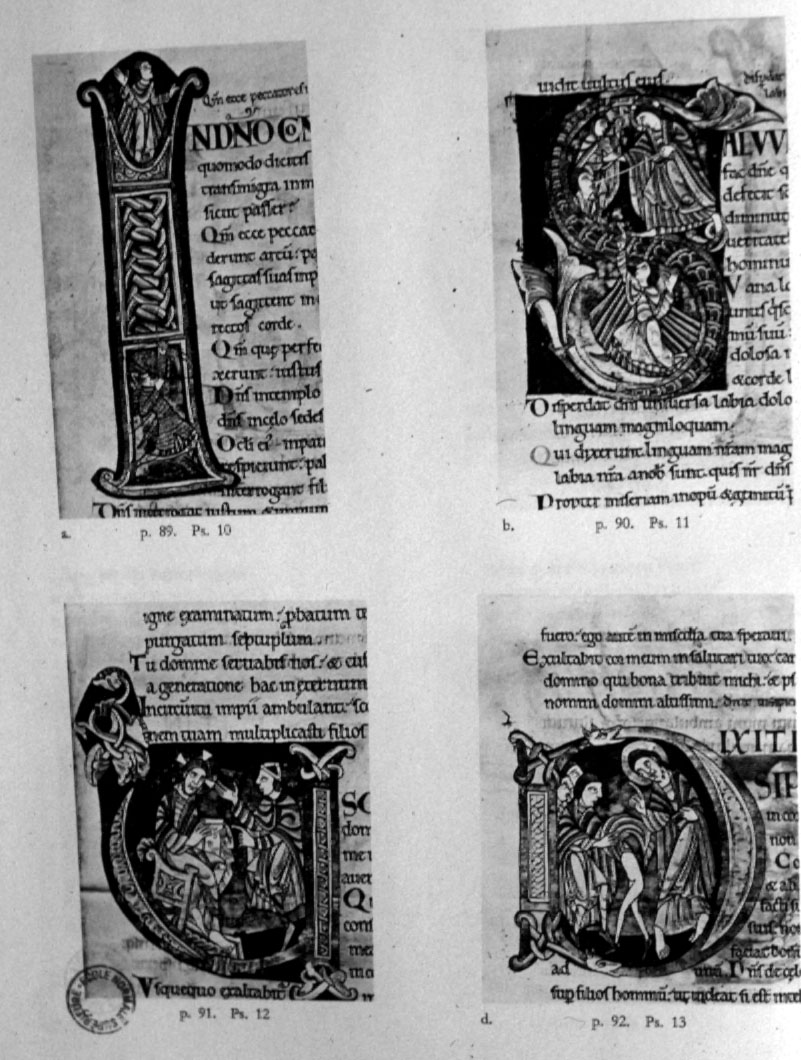 Qm̄ ecce peccatores i
NDNO CON
quomodo dicitis
transmigra in m
sicut passer?
Qm̄ ecce peccat
derunt arcū: pa
sagittas suas in p
ut sagittent in
rectos corde.
Qm̄ que perfe
xerunt: iustus
Dn̄s in templo
dn̄s in celo sedes
Oculi ei in pau
respiciunt: pal
interrogant fil
Dn̄s interrogat iustum & impium
a. p. 89. Ps. 10
uidit uultus eius.
S ALVV
fac dn̄e q
defecit s
diminut
ueritate
hominu
Vana lo
unus qsc
mū suū:
dolosa i
& corde l
Disperdat dn̄s uniuersa labia dolo
linguam magniloquam.
Qui dixerunt linguam nr̄am mag
labia nr̄a a nob̄ sunt, quis nr̄ dn̄s
Propter miseriam inopū & gemitū
b. p. 90. Ps. 11
igne examinatum: p̱batum t
purgatum septuplum.
Tu domine seruabis nos: & cus
a generatione hac in eternum
In circuitu impii ambulant: sc
nem tuam multiplicasti filios
SQ
dom
me
auer
Q
cons
me
Vsquequo exaltabit
p. 91. Ps. 12
ÉCOLE NORMALE SUPÉRIEURE
fuero: ego autē in misc̄dia tua speraui.
Exultabit cor meum in salutari tuo: can
domino qui bona tribuit michi: & ps
nomini domini altissimi.
D IXIT I
SIP
in co
non
Co
& ab
facti s
suis: no
faciat bon
ad unū. Dn̄s de cel
sup filios hominū: ut uideat si est intell
d. p. 92. Ps. 13